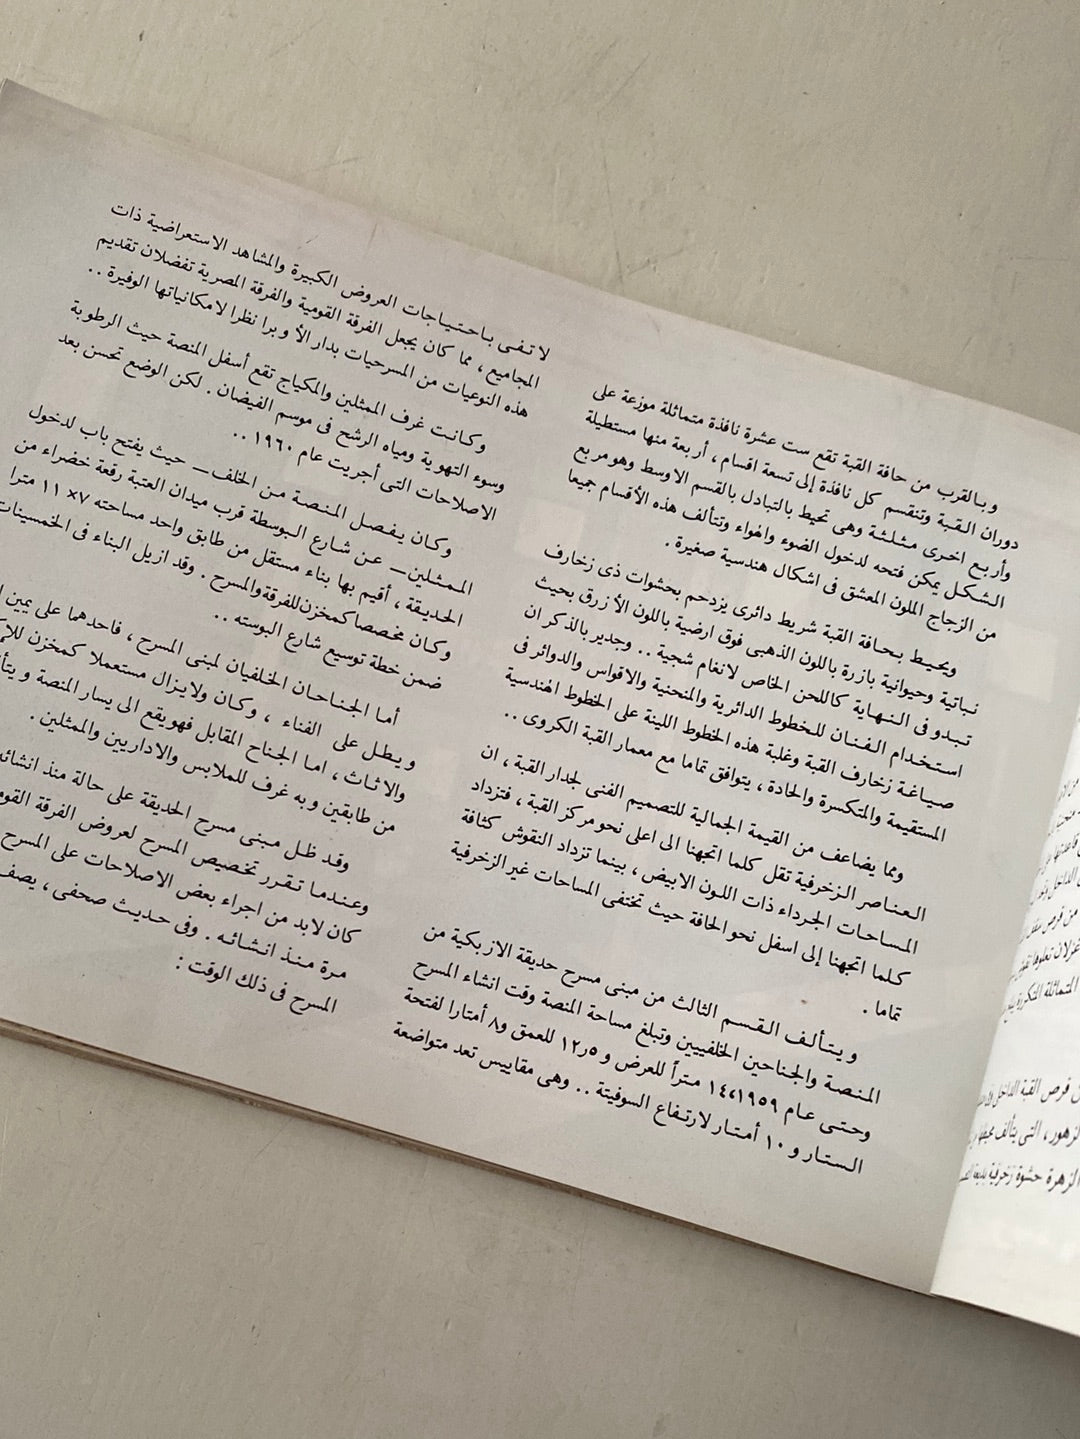 وبالقرب من حافة القبة تقع ست عشرة نافذة متماثلة موزعة على
دوران القبة وتنقسم كل نافذة إلى تسعة اقسام ، أربعة منها مستطيلة
وأربع اخرى مثلثة وهى تحيط بالتبادل بالقسم الاوسط وهو مربع
الشكل يمكن فتحه لدخول الضوء والهواء وتتألف هذه الأقسام جميعا
من الزجاج الملون المعشق فى اشكال هندسية صغيرة .
ويحيط بحافة القبة شريط دائرى يزدحم بحشوات ذى زخارف
نباتية وحيوانية بارزة باللون الذهبى فوق ارضية باللون الأزرق بحيث
تبدو فى النهاية كاللحن الخاص لانغام شجية .. وجدير بالذكر ان
استخدام الفنان للخطوط الدائرية والمنحنية والاقواس والدوائر فى
صياغة زخارف القبة وغلبة هذه الخطوط اللينة على الخطوط الهندسية
المستقيمة والمتكسرة والحادة ، يتوافق تماما مع معمار القبة الكروى ..
ومما يضاعف من القيمة الجمالية للتصميم الفنى لجدار القبة ، ان
العناصر الزخرفية تقل كلما اتجهنا الى اعلى نحو مركز القبة ، فتزداد
المساحات الجرداء ذات اللون الابيض ، بينما تزداد النقوش كثافة
كلما اتجهنا إلى اسفل نحو الحافة حيث تختفى المساحات غير الزخرفية
تماما .
ويتألف القسم الثالث من مبنى مسرح حديقة الازبكية من
المنصة والجناحين الخلفيين وتبلغ مساحة المنصة وقت انشاء المسرح
وحتى عام ١٤،١٩٥٩ متراً للعرض و ١٢٫٥ للعمق و٨ أمتارا لفتحة
الستار و ١٠ أمتار لارتفاع السوفيتة .. وهى مقاييس تعد متواضعة
لا تفى باحتياجات العروض الكبيرة والمشاهد الاستعراضية ذات
المجاميع ، مما كان يجعل الفرقة القومية والفرقة المصرية تفضلان تقديم
هذه النوعيات من المسرحيات بدار الأوبرا نظرا لامكانياتها الوفيرة ..
وكانت غرف الممثلين والمكياج تقع أسفل المنصة حيث الرطوبة
وسوء التهوية ومياه الرشح فى موسم الفيضان . لكن الوضع تحسن بعد
الاصلاحات التى أجريت عام ١٩٦٠ ..
وكان يفصل المنصة من الخلف — حيث يفتح باب لدخول
الممثلين — عن شارع البوسطة قرب ميدان العتبة رقعة خضراء من
الحديقة ، أقيم بها بناء مستقل من طابق واحد مساحته ٧ × ١١ مترا
وكان مخصصا كمخزن للفرقة والمسرح . وقد ازيل البناء فى الخمسينات
ضمن خطة توسيع شارع البوسته ..
أما الجناحان الخلفيان لمبنى المسرح ، فاحدهما على يمين
ويطل على الفناء ، وكان ولا يزال مستعملا كمخزن
والاثاث ، اما الجناح المقابل فهو يقع الى يسار المنصة
من طابقين وبه غرف للملابس والاداريين والممثلين .
وقد ظل مبنى مسرح الحديقة على حالة منذ
وعندما تقرر تخصيص المسرح لعروض الفرقة
كان لابد من اجراء بعض الاصلاحات على المسرح
مرة منذ انشائه . وفى حديث صحفى ،
المسرح فى ذلك الوقت :
من قرص القبة الداخلى
الزهور ، التى يتألف
الزهرة حشوة زخرفية بديعة